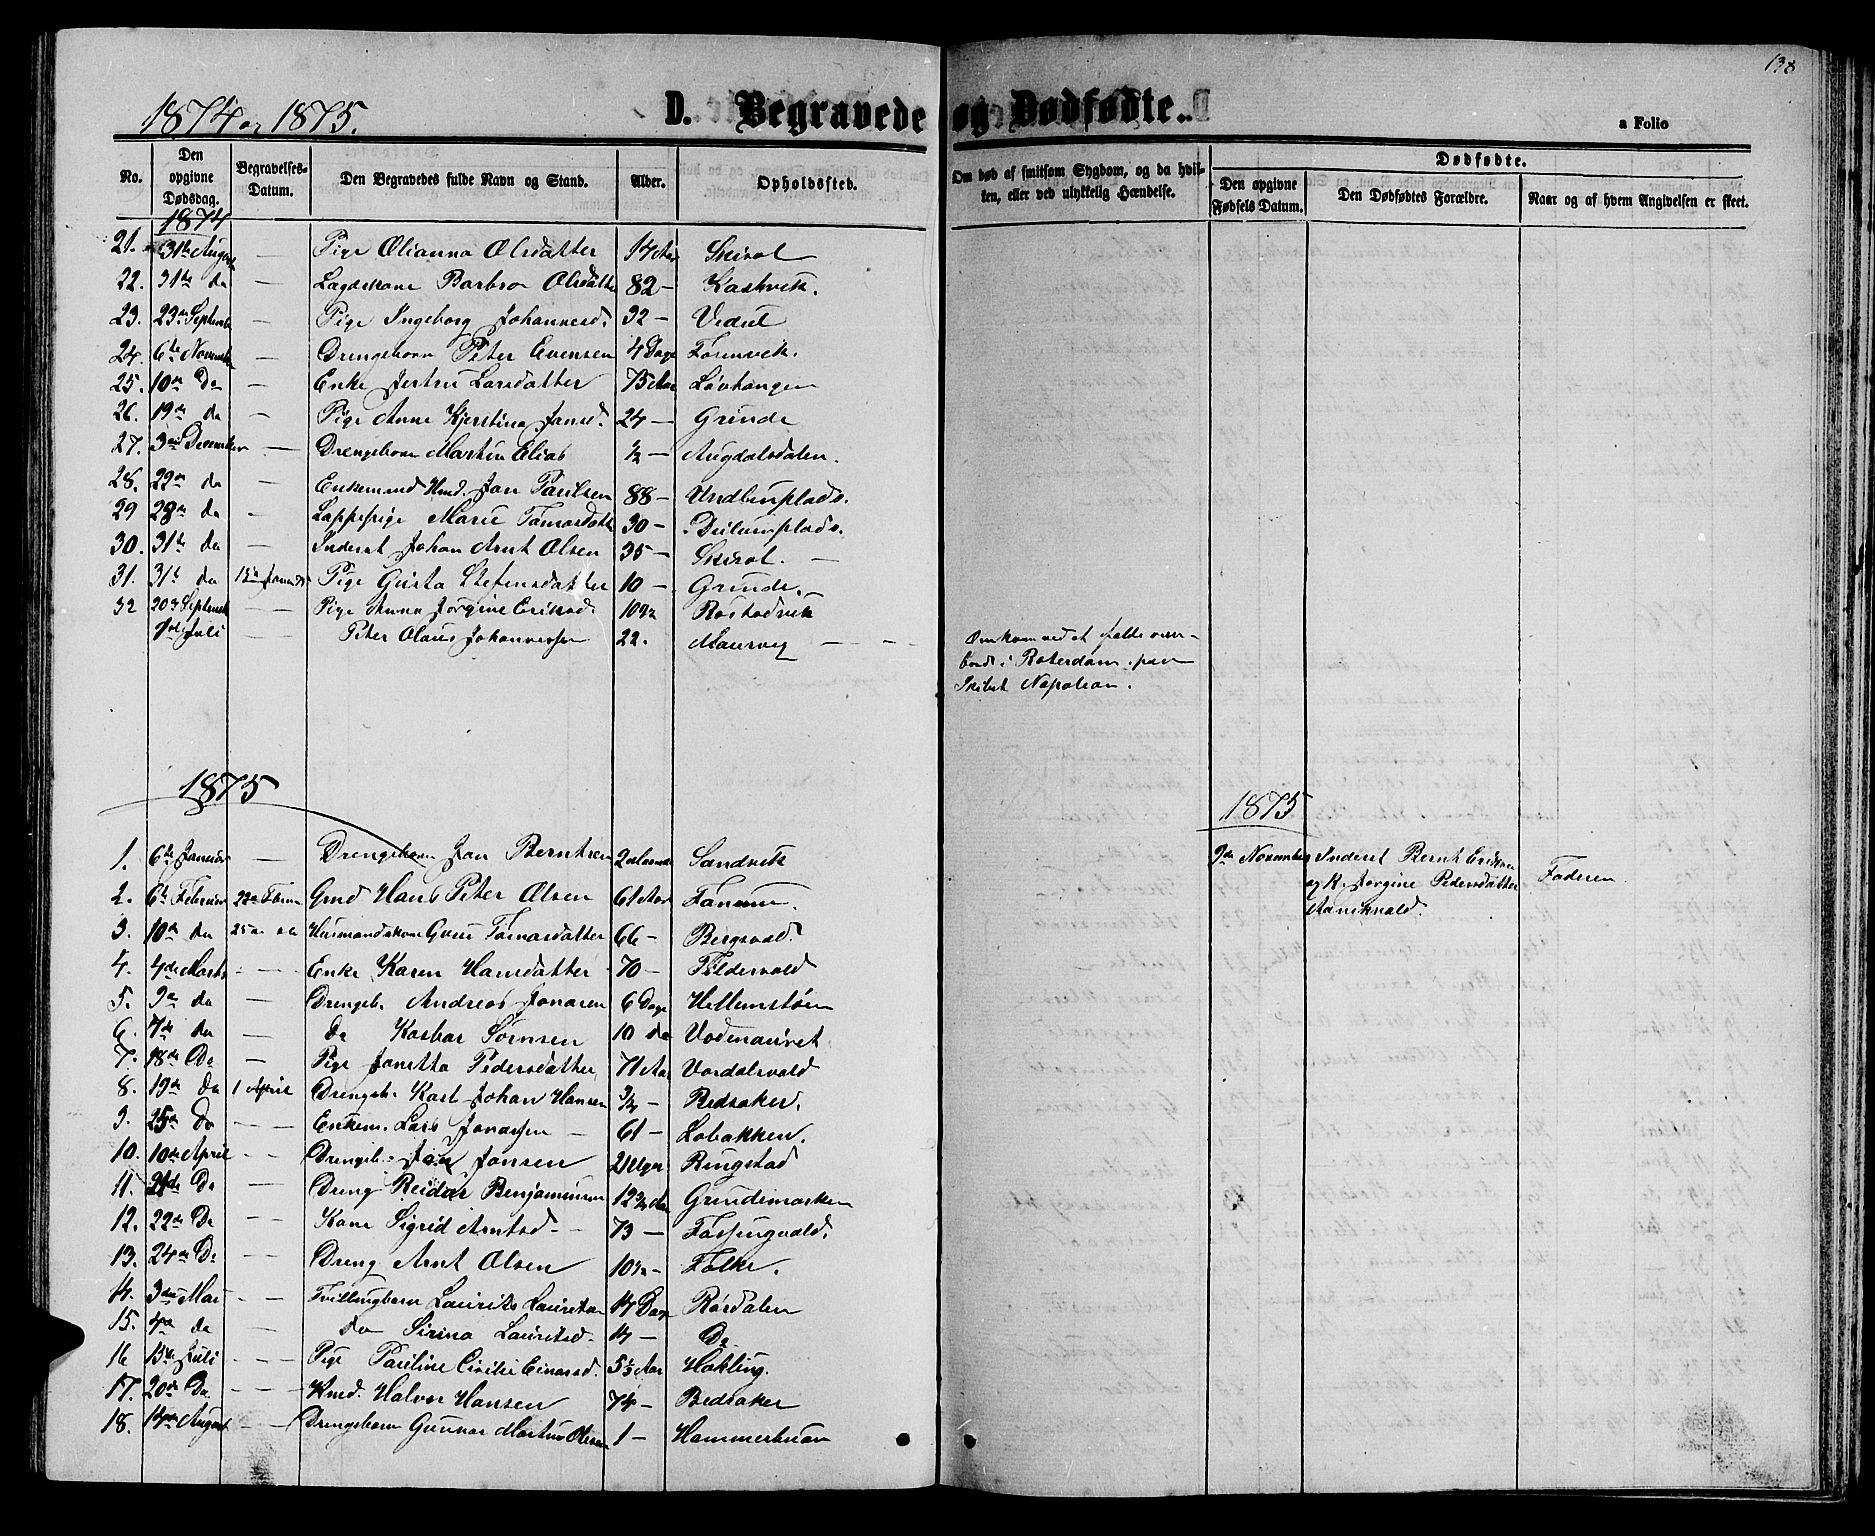 138
1874 og 1875.
D. Begravede og Dødfødte.
a Folio
No.
Den opgivne Dødsdag.
Begravelses-Datum.
Den Begravedes fulde Navn og Stand.
Alder.
Opholdssted.
Om død af smitsom Sygdom, og da hvilken, eller ved ulykkelig Hændelse.
Dødfødte.
Den opgivne Fødsels Datum.
Den Dødfødtes Forældre.
Naar og af hvem Angivelsen er skeet.
1874
21. 31te August — Pige Olianna Olsdatter 14 Aar Skirol
22. 31te do — Lagdskone Barbro Olsdatter 82 — Kaskvik.
23. 23de Septembr — Pige Ingeborg Johannesd. 32 — Vedul
24. 6te Novembr — Drengebarn Peter Evensen 4 Dage Fornvik.
25. 10de Do — Enke Jertru Larsdatter 75 Aar Løvtangen
26. 19de do — Pige Anne Kjerstina Jansd. 24 — Grinde
27. 3die December — Drengebarn Martin Elias ½ — Augdalsdalen.
28. 22de do — Enkemand Hmd. Jon Paulsen 88 — Undlinplads.
29 28de do — Lappepige Marie Tomasdatter 30 — Duluniplads.
30. 31te do — Inderst Johan Arnt Olsen 35 — Skirol. —
31. 31te do Pige Gusta Stefensdatter 10 — Grinde.
32 20de Septemb — Pige Anna Jørgine Eriksd. Rostadvik
Juli — Peter Olaus Johannessen 22. Maurvig — — —
Omkom ved at falde over-
bord i Roterdam paa
Skibet Napolean.
1875
1. 6te Januar — Drengebarn Jon Berntsen Sandvik
2. 6te Februar Gmd Hans Peter Olsen 61 Aar Fanum.
3. 10de do 25de do Husmandskone Guru Tomasdatter 66 — Bergsvald.
4. 4de Marts — Enke Karen Hansdatter 70 — Tildervald
5. 9de do — Drengeb. Andreas Jonasen 6 Dage Hellemstøen
6. 7de do — Do Kasbar Sørnsen 10 do Vodmauret
7. 18de Do — Pige Janetta Pedersdatter 71 Aar Vordalsvald
8. 19de Do 1 April Drengeb. Karl Johan Hansen ¾ — Bedsaker.
9. 25de Do — Enkem. Lars Jonassen — 61 — Lobakken.
10. 10de April — Drengeb. Jan Jonsen 2 Uger Ringstad
11. 21de Do — Dreng Reidar Benjaminsen Grindemarken
12. 22de Do — Kone Sigrid Arntsd — 73 — Fossingvald.
13. 24de Do — Dreng Arnt Olsen Folke.
14. 3die Mai — Tvillingbarn Laurits Lauritsen 14 Dage Rosdalen
15. 4de do — do Sirina Lauritsd. 14 — Do
16 13de Juli — Pige Pauline Cicilie Einarsd. 5½ Aar Hokling.
17. 20de Do. — Kmd. Halvor Hansen 74 — Bedsaker
18. 14de August — Drengebarn Gunnar Martinus Olsen 1 — Hammerhuan
1875
9de November Inderst Bernt Eriksen
og K. Jørgine Pedersdatter
Faderen